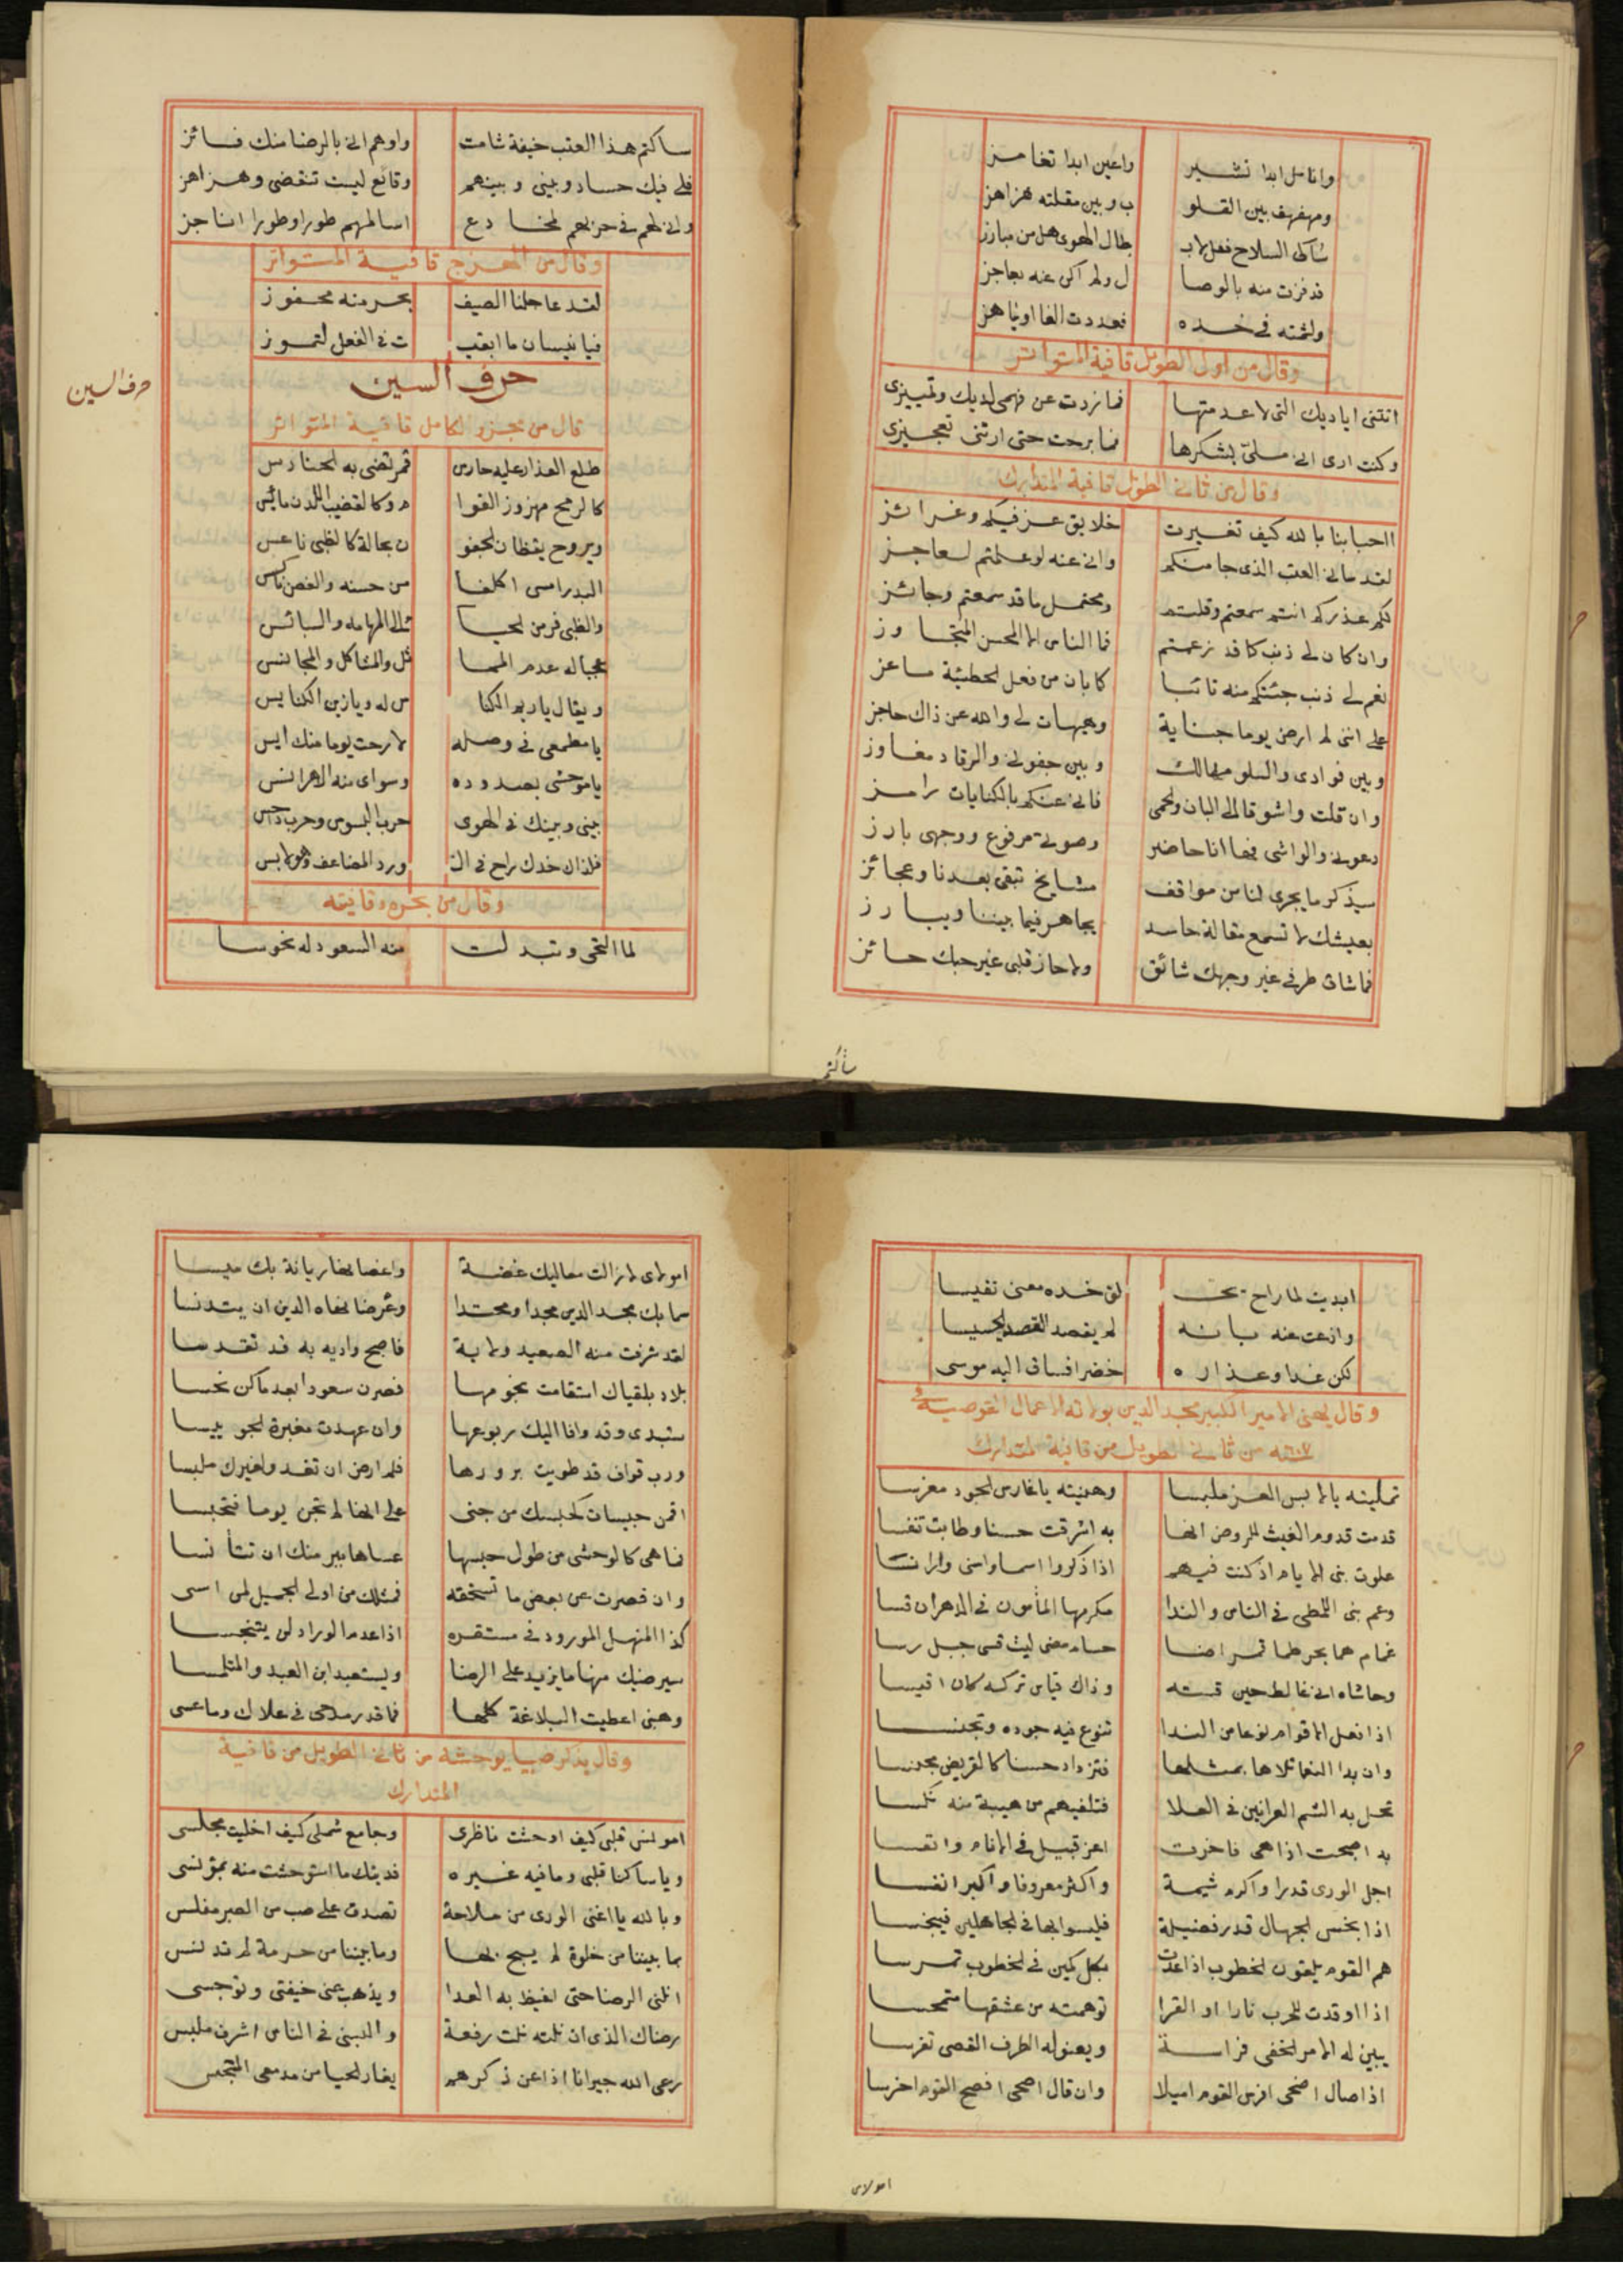 وانامل ابدا تشير واعين ابدا تغامز
ومهفهف بين القلو ب وبين مقلته هزاهز
شاكى السلاح فقل لاب طال الهوى هل من مبارز
قد فزت منه بالوصا ل ولم اكن عنه بعاجز
ولثمته في خده فعددت الفا او يناهز
وقال من اول الطويل قافية المتواتر
اتتنى اياديك التى لا عدمتها فما زدت عن فهمى لديك وتمييزى
وكنت ارى انى ملى بشكرها فما برحت حتى ارتنى تعجيزى
وقال من ثانى الطويل قافية المتدارك
ااحبابنا بالله كيف تغيرت خلايق غر فيكم وغرائز
لقد سانى العتب الذى جا منكم وانى عنه لو علمتم لعاجز
لكم عذركم انتم سمعتم وقلتم ومحتمل ما قد سمعتم وجائز
وان كان لى ذنب كما قد زعمتم فما الناس الا المحسن المتجاوز
نعم لى ذنب جئتكم منه تائبا كما بان من فعل الخطيئة ماعز
على اننى لم ارض يوما جناية وهيهات لى والله عن ذاك حاجز
وبين فوادى والسلو مهالك وبين جفونى والرقاد مفاوز
وان قلت واشوقا الى البان والحمى فانى عنكم بالكنايات رامز
دعونى والواشى فها انا حاضر وصوتى مرفوع ووجهى بارز
سيذكر ما يجرى لنا من مواقف مشايخ تبقى بعدنا وعجائز
بعيشك لا تسمع مقالة حاسد يجاهر فيما بيننا ويبارز
فما شاق طرفى غير وجهك شائق ولا حاز قلبى غير حبك حائز
سأكتم
ساكتم هذا العتب خيفة شامت واوهم انى بالرضا منك فائز
فلى فيك حساد وبينى وبينهم وقائع ليست تنقضى وهزاهز
وانى لهم في حربهم لمخادع اسالمهم طورا وطورا اناجز
وقال من الهزج قافية المتواتر
لقد عاجلنا الصيف بحر منه محفوز
فيا نيسان ما ابقيـ ت في الفعل لتموز
حرف السين
حرف السين
قال من مجزو الكامل قافية المتواتر
طلع العذار عليه حارس قمر تضى به الحنادس
كالرمح مهزوز القوا م وكالقضيب اللدن مائس
ويروح يقظان الجفو ن بحالة كالظبى ناعس
البدر امسى اكلفا من حسنه والغصن ناكس
والظبى فر من الحيا الى المهامه والبسائس
عجبا له عدم المما ثل والمشاكل والمجانس
ويقال يا ريم الكنا س له ويا زين الكنايس
يا مطمعى في وصله لا رحت يوما منك ايس
يا موحشى بصدوده وسواى منه الدهر انس
بينى وبينك في الهوى حرب البسوس وحرب داحس
فلذاك خدك راح في الـ ورد المضاعف وهو لابس
وقال من بحره وقافيته
لما التحى وتبدلت منه السعود له نحوسا
ابديت لما راح يحـ لق خده معنى نفيسا
واذعت عنه بانه لم يقصد القصد الخسيسا
لكن غدا وعذاره خضرا فساق اليه موسى
وقال يهنى الامير الكبير مجد الدين بولاته الاعمال القوصية في
سنته من ثانى الطويل من قافية المتدارك
تمليته يا لابس العز ملبسا وهنيته يا غارس الجود مغرسا
قدمت قدوم الغيث للروض انها به اشرقت حسنا وطابت تنفسا
علوت بنى الايام اذ كنت فيهم اذا ذكروا اسما واسنى واراسا
وعم بنى اللمطى في الناس والندا مكرمها المأمون في الدهر ان قسا
غمام هما بحر طما قمر اضا حسام مضى ليث قسى جبل رسا
وحاشاه انى غالط حين قسته وذاك قياس تركه كان اقيسا
اذا فعل الاقوام نوعا من الندا تنوع فيه جوده وتجنسا
وان بدا النعما تلاها بمثلها فتزداد حسنا كالقريض مجنسا
تحل به الشم العرانين في العلا فتلفيهم من هيبة منه نكسا
به اصبحت اذا هى فاخرت اعز قبيل في الانام وانفسا
اجل الورى قدرا واكرم شيمة واكثر معروفا واكبر انفسا
اذا بخس الجهال قدر فضيلة فليسوا بها في الجاهلين فيبخسا
هم القوم يلقون الخطوب اذا عدت بكل كمين في الخطوب تمرسا
اذا اوقدت للحرب نارا او القرا توهمته من عشقها متمجسا
يبين له الامر الخفى فراسة ويعنو له الطرف القصى تفرسا
اذا صال اضحى افرس القوم اميلا وان قال اضحى افصح القوم اخرسا
امولاى
امولاى لا زالت معاليك غضة واغصانها ريانة بك ميسا
سما بك مجد الدين مجدا ومحتدا وعرضا نهاه الدين ان يتدنسا
لقد شرفت منه الصعيد ولاية فاصبح واديه به قد تقدسا
بلاد بلقياك استقامت نجومها فصرن سعودا بعد ما كن نحسا
ستبدى وقد وافا اليك ربوعها وان عهدت مغبرة الجو يبسا
ورب قواف قد طويت برودها فلم ارض ان تغدو لغيرك ملبسا
اقمن حبيسات كحبسك من جنى على انها لم تجن يوما فتحبسا
فما هى كالوحشى من طول حبسها عساها ببر منك ان تتأنسا
وان قصرت عن بعض ما تستحقه فمثلك من اولى الجميل لمن اسى
كذا المنهل المورود في مستقره اذا عدم الوراد لن يتنجسا
سيرضيك منها ما يزيد على الرضا ويستعبد ابن العبد والمتلمسا
وهبنى اعطيت البلاغة كلها فما قدر مدحى في علاك وما عسى
وقال يذكر صبيا يوحشه من ثانى الطويل من قافية
المتدارك
امونس قلبى كيف اوحشت ناظرى وجامع شملى كيف اخليت مجلسى
ويا ساكنا قلبى وما فيه غيره فديتك ما استوحشت منه بمؤنس
وبالله يا اغنى الورى من ملاحة تصدق على صب من الصبر مفلس
بما بيننا من خلوة لم يبح بها وما بيننا من حرمة لم تدنس
انلنى الرضا حتى اغيظ به العدا ويذهب عنى خيفتى وتوجسى
رضاك الذى ان نلته نلت رفعة والبسنى في الناس اشرف ملبس
رعى الله جيرانا اذا عن ذكرهم يغار الحيا من مدمعى المتبجس